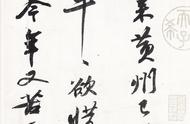 來黃州已
年〻欲惜
今年又苦